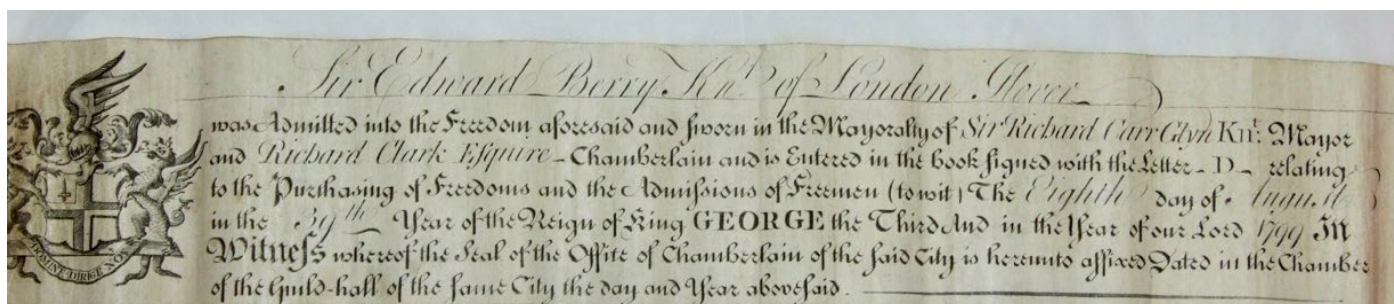 Sir Edward Berry Knt. of London Glover
was Admitted into the Freedom aforesaid and sworn in the Mayoralty of Sir Richard Carr Glyn Knt: Mayor
and Richard Clark Esquire - Chamberlain and is Entered in the book signed with the Letter - D - relating
to the Purchasing of Freedoms and the Admissions of Freemen (to wit) The Eighth day of August
in the 39th Year of the Reign of King GEORGE the Third And in the Year of our Lord 1799 In
Witness whereof the Seal of the Office of Chamberlain of the said City is hereunto affixed Dated in the Chamber
of the Guild-hall of the same City the day and Year abovesaid.
DOMINE DIRIGE NOS